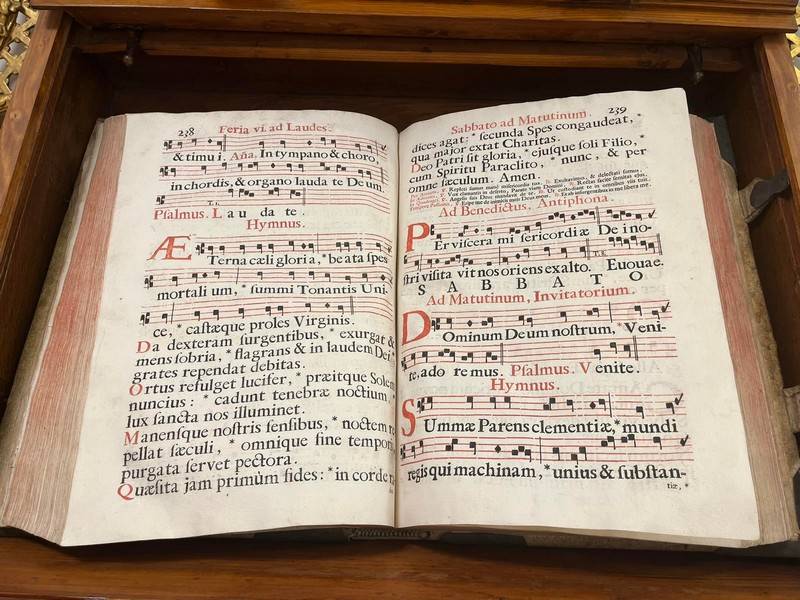 238
Feria vi. ad Laudes.
& timu i. Aña. In tympano & choro,
in chordis, & organo lauda te De um.
T. 1.
Psalmus. L au da te.
Hymnus.
Æ Terna cæli gloria, * be ata spes
mortali um, * summi Tonantis Uni-
ce, * castæque proles Virginis.
Da dexteram surgentibus, * exurgat &
mens sobria, * flagrans & in laudem Dei
grates rependat debitas.
Ortus refulget lucifer, * præitque Solem
nuncius: * cadunt tenebræ noctium,
lux sancta nos illuminet.
Manensque nostris sensibus, * noctem re
pellat sæculi, * omnique fine tempor
purgata servet pectora.
Quæsita jam primùm fides: * in corde
239
Sabbato ad Matutinum.
dices agat: * secunda Spes congaudeat, *
qua major extat Charitas.
Deo Patri sit gloria, * ejusque soli Filio, *
cum Spiritu Paraclito, * nunc, & per
omne sæculum. Amen.
Ad Benedictus. Antiphona.
Per viscera mi sericordiæ De i no-
stri visita vit nos oriens ex alto. Euouae.
SABBATO
Ad Matutinum, Invitatorium.
Dominum Deum nostrum, * Veni-
te, ado re mus. Psalmus. Venite.
Hymnus.
SUmmæ Parens clementiæ, * mundi
regis qui machinam, * unius & substan-
tiæ, *